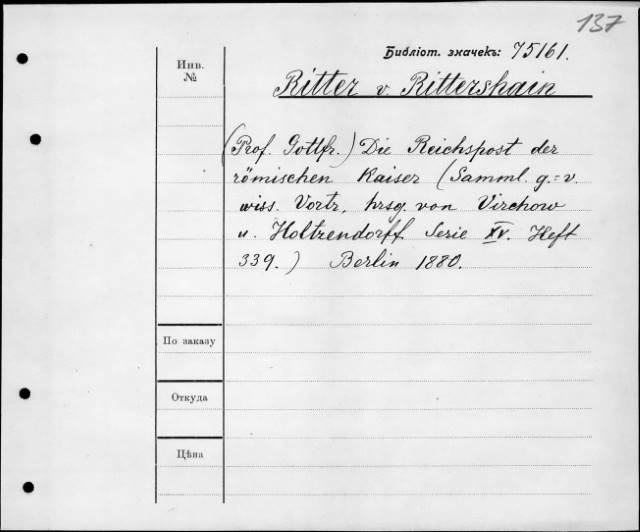 137
Библіот. значекъ: 75161.
Инв.
№
Ritter v. Rittershain
(Prof. Gottfr.) Die Reichspost der
römischen Kaiser (Samml. g.=v.
wiss. Vortr., hrsg. von Virchow
u. Holtzendorff. Serie XV. Heft
339.) Berlin 1880.
По заказу
Откуда
Цѣна